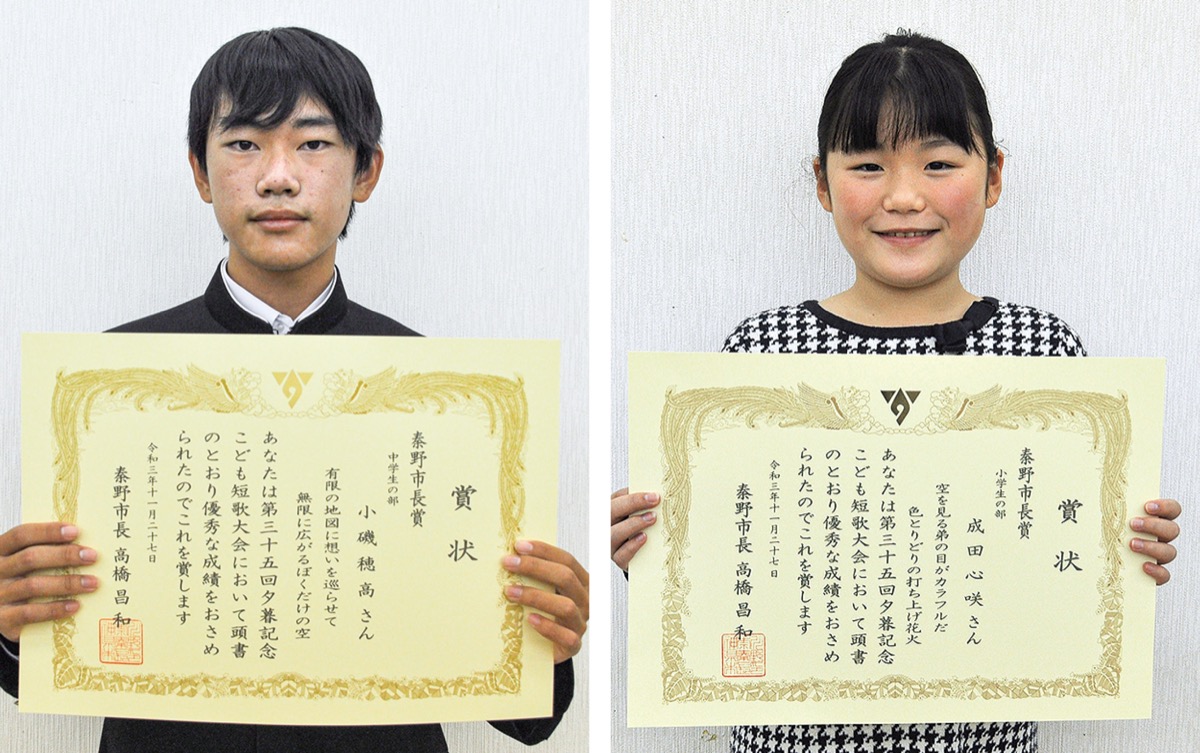 賞状
秦野市長賞
中学生の部
小磯穂高さん
有限の地図に想いを巡らせて
無限に広がるぼくだけの空
あなたは第三十五回夕暮記念
こども短歌大会において頭書
のとおり優秀な成績をおさめ
られたのでこれを賞します
令和三年十一月二十七日
秦野市長 高橋昌和
賞状
秦野市長賞
小学生の部
成田心咲さん
空を見る弟の目がカラフルだ
色とりどりの打ち上げ花火
あなたは第三十五回夕暮記念
こども短歌大会において頭書
のとおり優秀な成績をおさめ
られたのでこれを賞します
令和三年十一月二十七日
秦野市長 高橋昌和